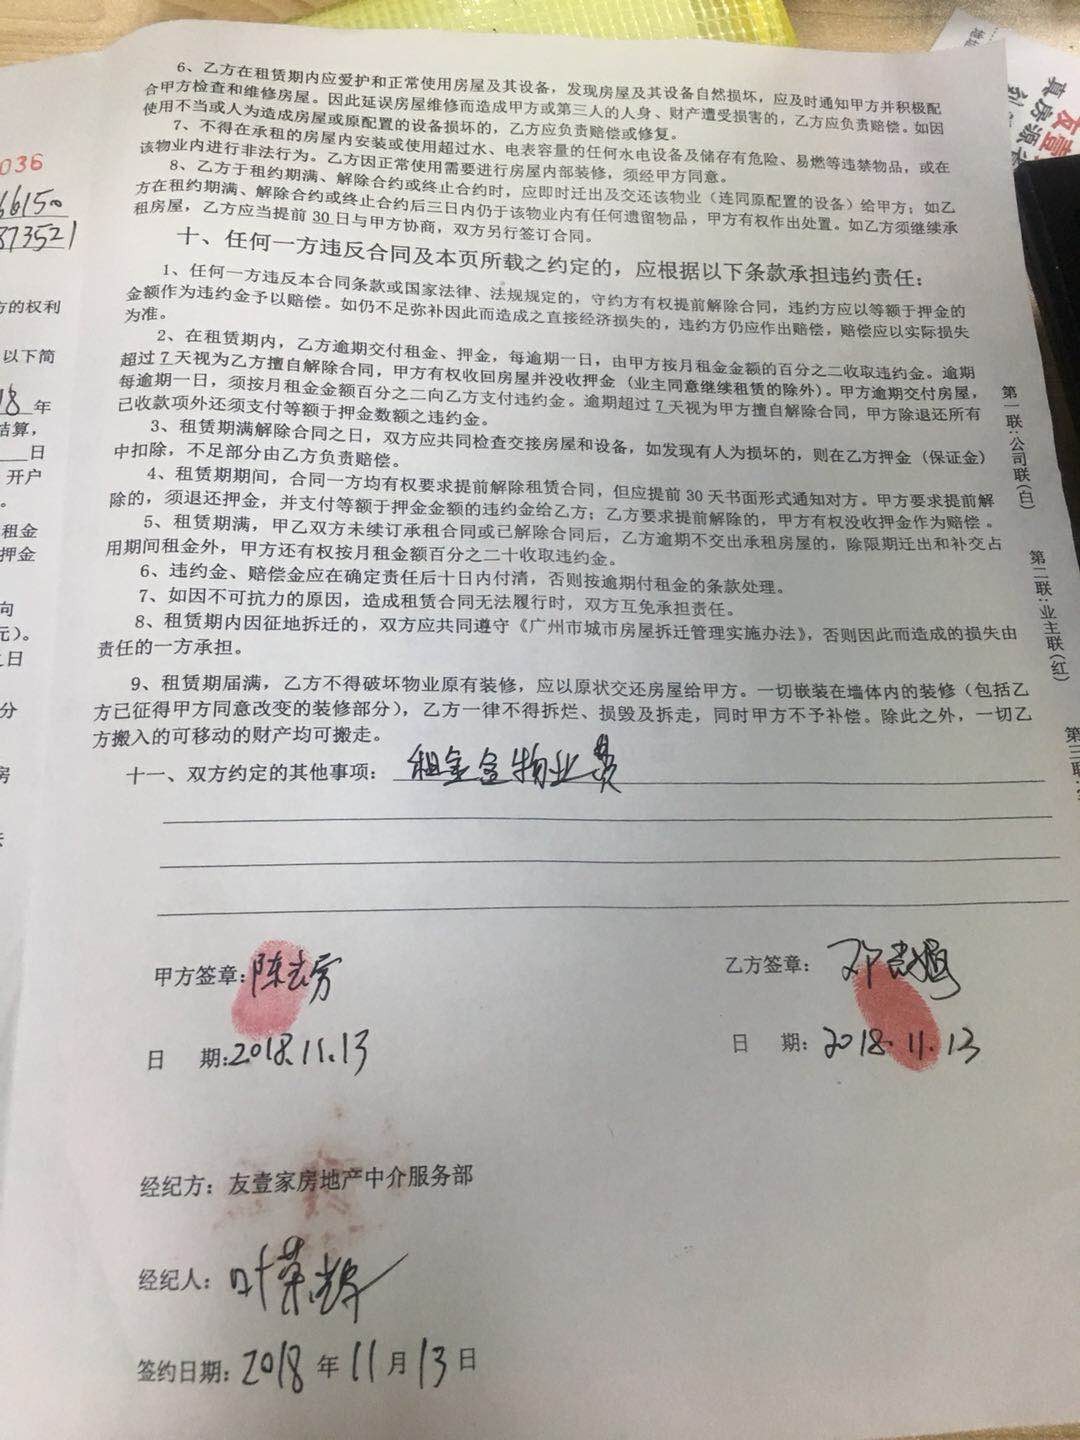 6、乙方在租赁期内应爱护和正常使用房屋及其设备，发现房屋及其设备自然损坏，应及时通知甲方并积极配
合甲方检查和维修房屋。因此延误房屋维修而造成甲方或第三人的人身、财产遭受损害的，乙方应负责赔偿。如因
使用不当或人为造成房屋或原配置的设备损坏的，乙方应负责赔偿或修复。
7、不得在承租的房屋内安装或使用超过水、电表容量的任何水电设备及储存有危险、易燃等违禁物品，或在
该物业内进行非法行为。乙方因正常使用需要进行房屋内部装修，须经甲方同意。
8、乙方于租约期满、解除合约或终止合约时，应即时迁出及交还该物业（连同原配置的设备）给甲方；如乙
方在租约期满、解除合约或终止合约后三日内仍于该物业内有任何遗留物品，甲方有权作出处置。如乙方须继续承
租房屋，乙方应当提前 30 日与甲方协商，双方另行签订合同。
十、任何一方违反合同及本页所载之约定的，应根据以下条款承担违约责任：
1、任何一方违反本合同条款或国家法律、法规规定的，守约方有权提前解除合同，违约方应以等额于押金的
金额作为违约金予以赔偿。如仍不足弥补因此而造成之直接经济损失的，违约方仍应作出赔偿，赔偿应以实际损失
为准。
2、在租赁期内，乙方逾期交付租金、押金，每逾期一日，由甲方按月租金金额的百分之二收取违约金。逾期
超过 7 天视为乙方擅自解除合同，甲方有权收回房屋并没收押金（业主同意继续租赁的除外）。甲方逾期交付房屋，
每逾期一日，须按月租金金额百分之二向乙方支付违约金。逾期超过 7 天视为甲方擅自解除合同，甲方除退还所有
已收款项外还须支付等额于押金数额之违约金。
3、租赁期满解除合同之日，双方应共同检查交接房屋和设备，如发现有人为损坏的，则在乙方押金（保证金）
中扣除，不足部分由乙方负责赔偿。
4、租赁期期间，合同一方均有权要求提前解除租赁合同，但应提前 30 天书面形式通知对方。甲方要求提前解
除的，须退还押金，并支付等额于押金金额的违约金给乙方；乙方要求提前解除的，甲方有权没收押金作为赔偿。
5、租赁期满，甲乙双方未续订承租合同或已解除合同后，乙方逾期不交出承租房屋的，除限期迁出和补交占
用期间租金外，甲方还有权按月租金额百分之二十收取违约金。
6、违约金、赔偿金应在确定责任后十日内付清，否则按逾期付租金的条款处理。
7、如因不可抗力的原因，造成租赁合同无法履行时，双方互免承担责任。
8、租赁期内因征地拆迁的，双方应共同遵守《广州市城市房屋拆迁管理实施办法》，否则因此而造成的损失由
责任的一方承担。
9、租赁期届满，乙方不得破坏物业原有装修，应以原状交还房屋给甲方。一切嵌装在墙体内的装修（包括乙
方已征得甲方同意改变的装修部分），乙方一律不得拆烂、损毁及拆走，同时甲方不予补偿。除此之外，一切乙
方搬入的可移动的财产均可搬走。
十一、双方约定的其他事项：租金含物业费
甲方签章：陈
乙方签章：邓
日 期：2018.11.13
日 期：2018.11.13
经纪方：友壹家房地产中介服务部
经纪人：叶荣
签约日期：2018 年 11 月 13 日
第一联：公司联（白）
第二联：业主联（红）
第三联：
036
66150
873521
方的权利
以下简
18 年
结算，
日
开户
租金
押金
向
元）。
日
分
房
友壹
真房源